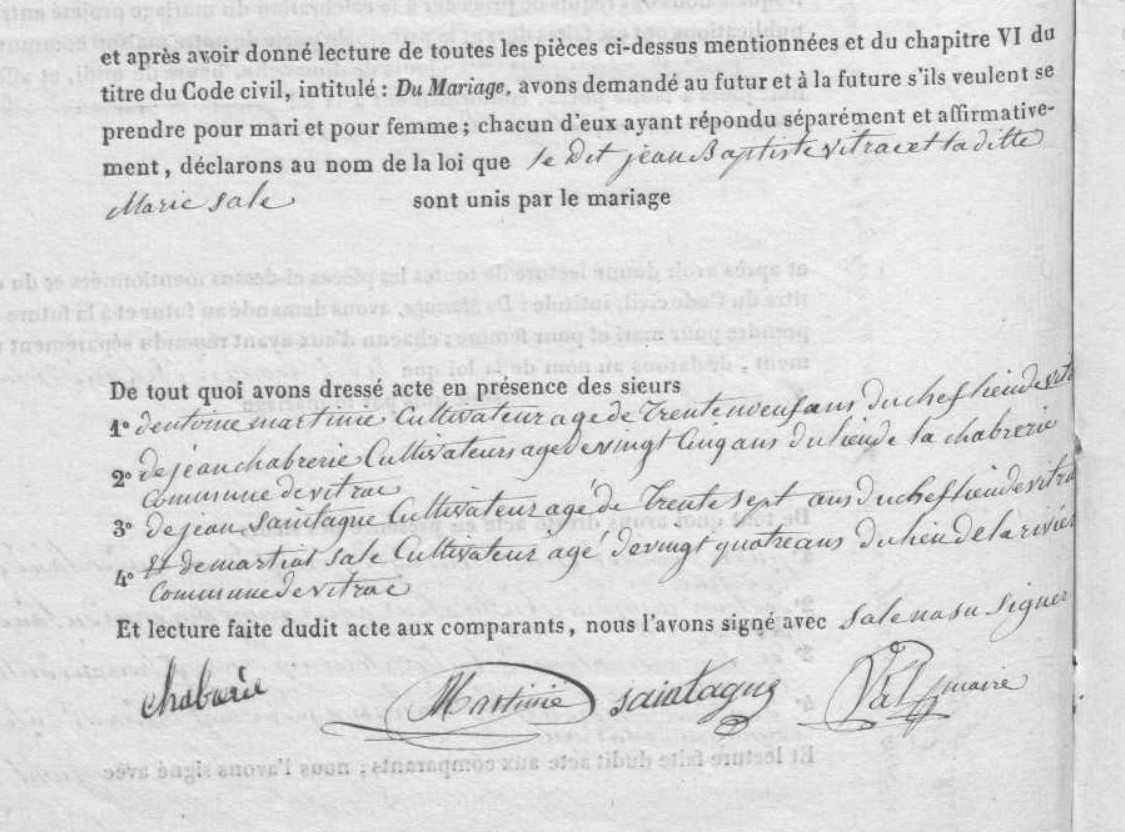 et après avoir donné lecture de toutes les pièces ci-dessus mentionnées et du chapitre VI du
titre du Code civil, intitulé : Du Mariage, avons demandé au futur et à la future s'ils veulent se
prendre pour mari et pour femme ; chacun d'eux ayant répondu séparément et affirmative-
ment, déclarons au nom de la loi que le Dit jean Baptiste vitrac et la ditte
Marie sale sont unis par le mariage
De tout quoi avons dressé acte en présence des sieurs
1° dentoine martinie Cultivateur agé de Trente neuf ans du chef lieu de
2° de jean chabrerie Cultivateurs agé de vingt Cinq ans du lieu de la chabrerie
Commune de vitrac
3° de jean saintagne Cultivateur agé de Trente sept ans du chef lieu de vitra
4° Et de martial sale Cultivateur agé de vingt quatre ans du lieu de la rivier
Commune de vitrac
Et lecture faite dudit acte aux comparants, nous l'avons signé avec sale na su signer
Martinie saintagne maire